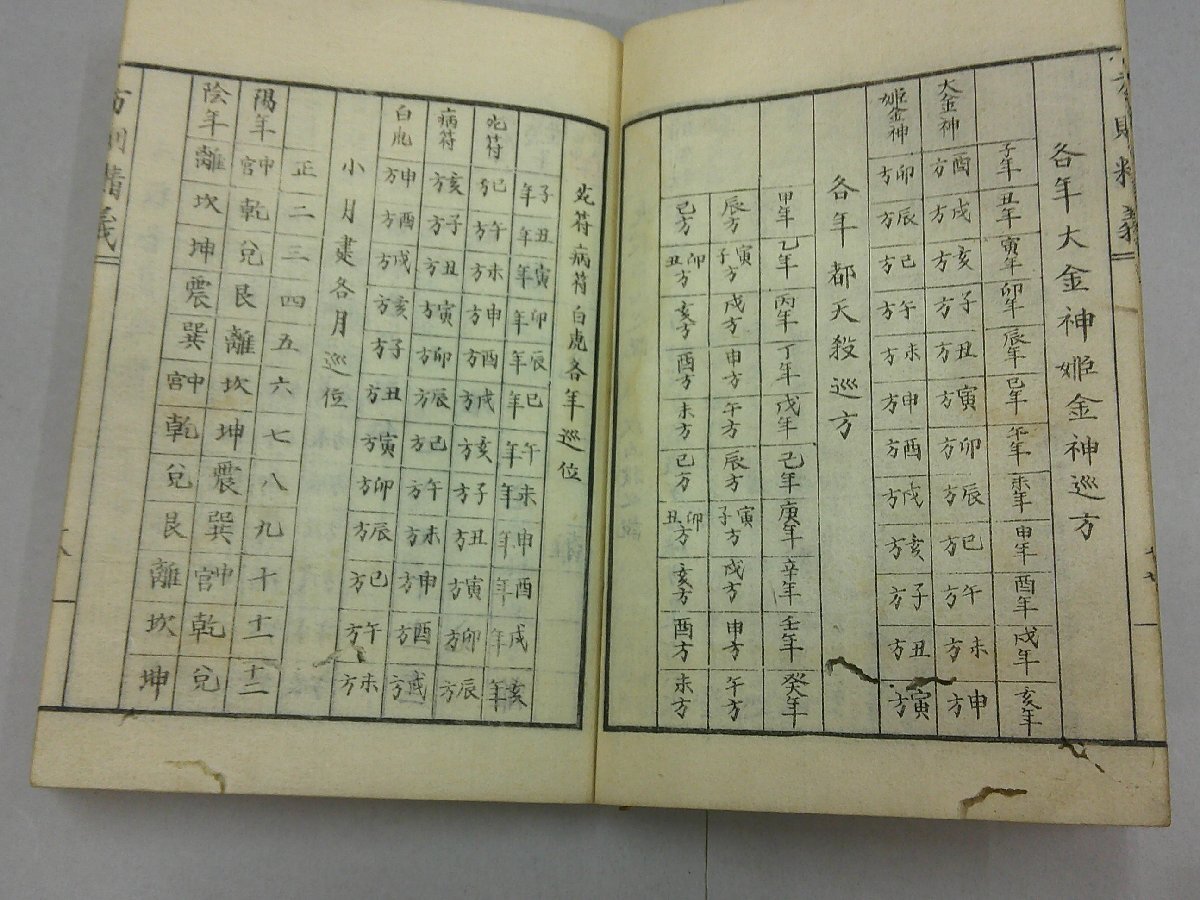 方則精義
各年大金神姫金神巡方
子年 丑年 寅年 卯年 辰年 巳年 午年 未年 申年 酉年 戌年 亥年
大金神 酉方 戌方 亥方 子方 丑方 寅方 卯方 辰方 巳方 午方 未方 申方
姫金神 卯方 辰方 巳方 午方 未方 申方 酉方 戌方 亥方 子方 丑方 寅方
各年都天殺巡方
甲年 乙年 丙年 丁年 戊年 己年 庚年 辛年 壬年 癸年
辰方 寅子方 戌方 申方 午方 辰方 寅子方 戌方 申方 午方
巳方 卯丑方 亥方 酉方 未方 巳方 卯丑方 亥方 酉方 未方
死符病符白虎各年巡位
子年 丑年 寅年 卯年 辰年 巳年 午年 未年 申年 酉年 戌年 亥年
死符 巳方 午方 未方 申方 酉方 戌方 亥方 子方 丑方 寅方 卯方 辰方
病符 亥方 子方 丑方 寅方 卯方 辰方 巳方 午方 未方 申方 酉方 戌方
白虎 申方 酉方 戌方 亥方 子方 丑方 寅方 卯方 辰方 巳方 午方 未方
小月建各月巡位
正 二 三 四 五 六 七 八 九 十 十一 十二
陽年 中宮 乾 兌 艮 離 坎 坤 震 巽 中宮 乾 兌
陰年 離 坎 坤 震 巽 中宮 乾 兌 艮 離 坎 坤
方則精義